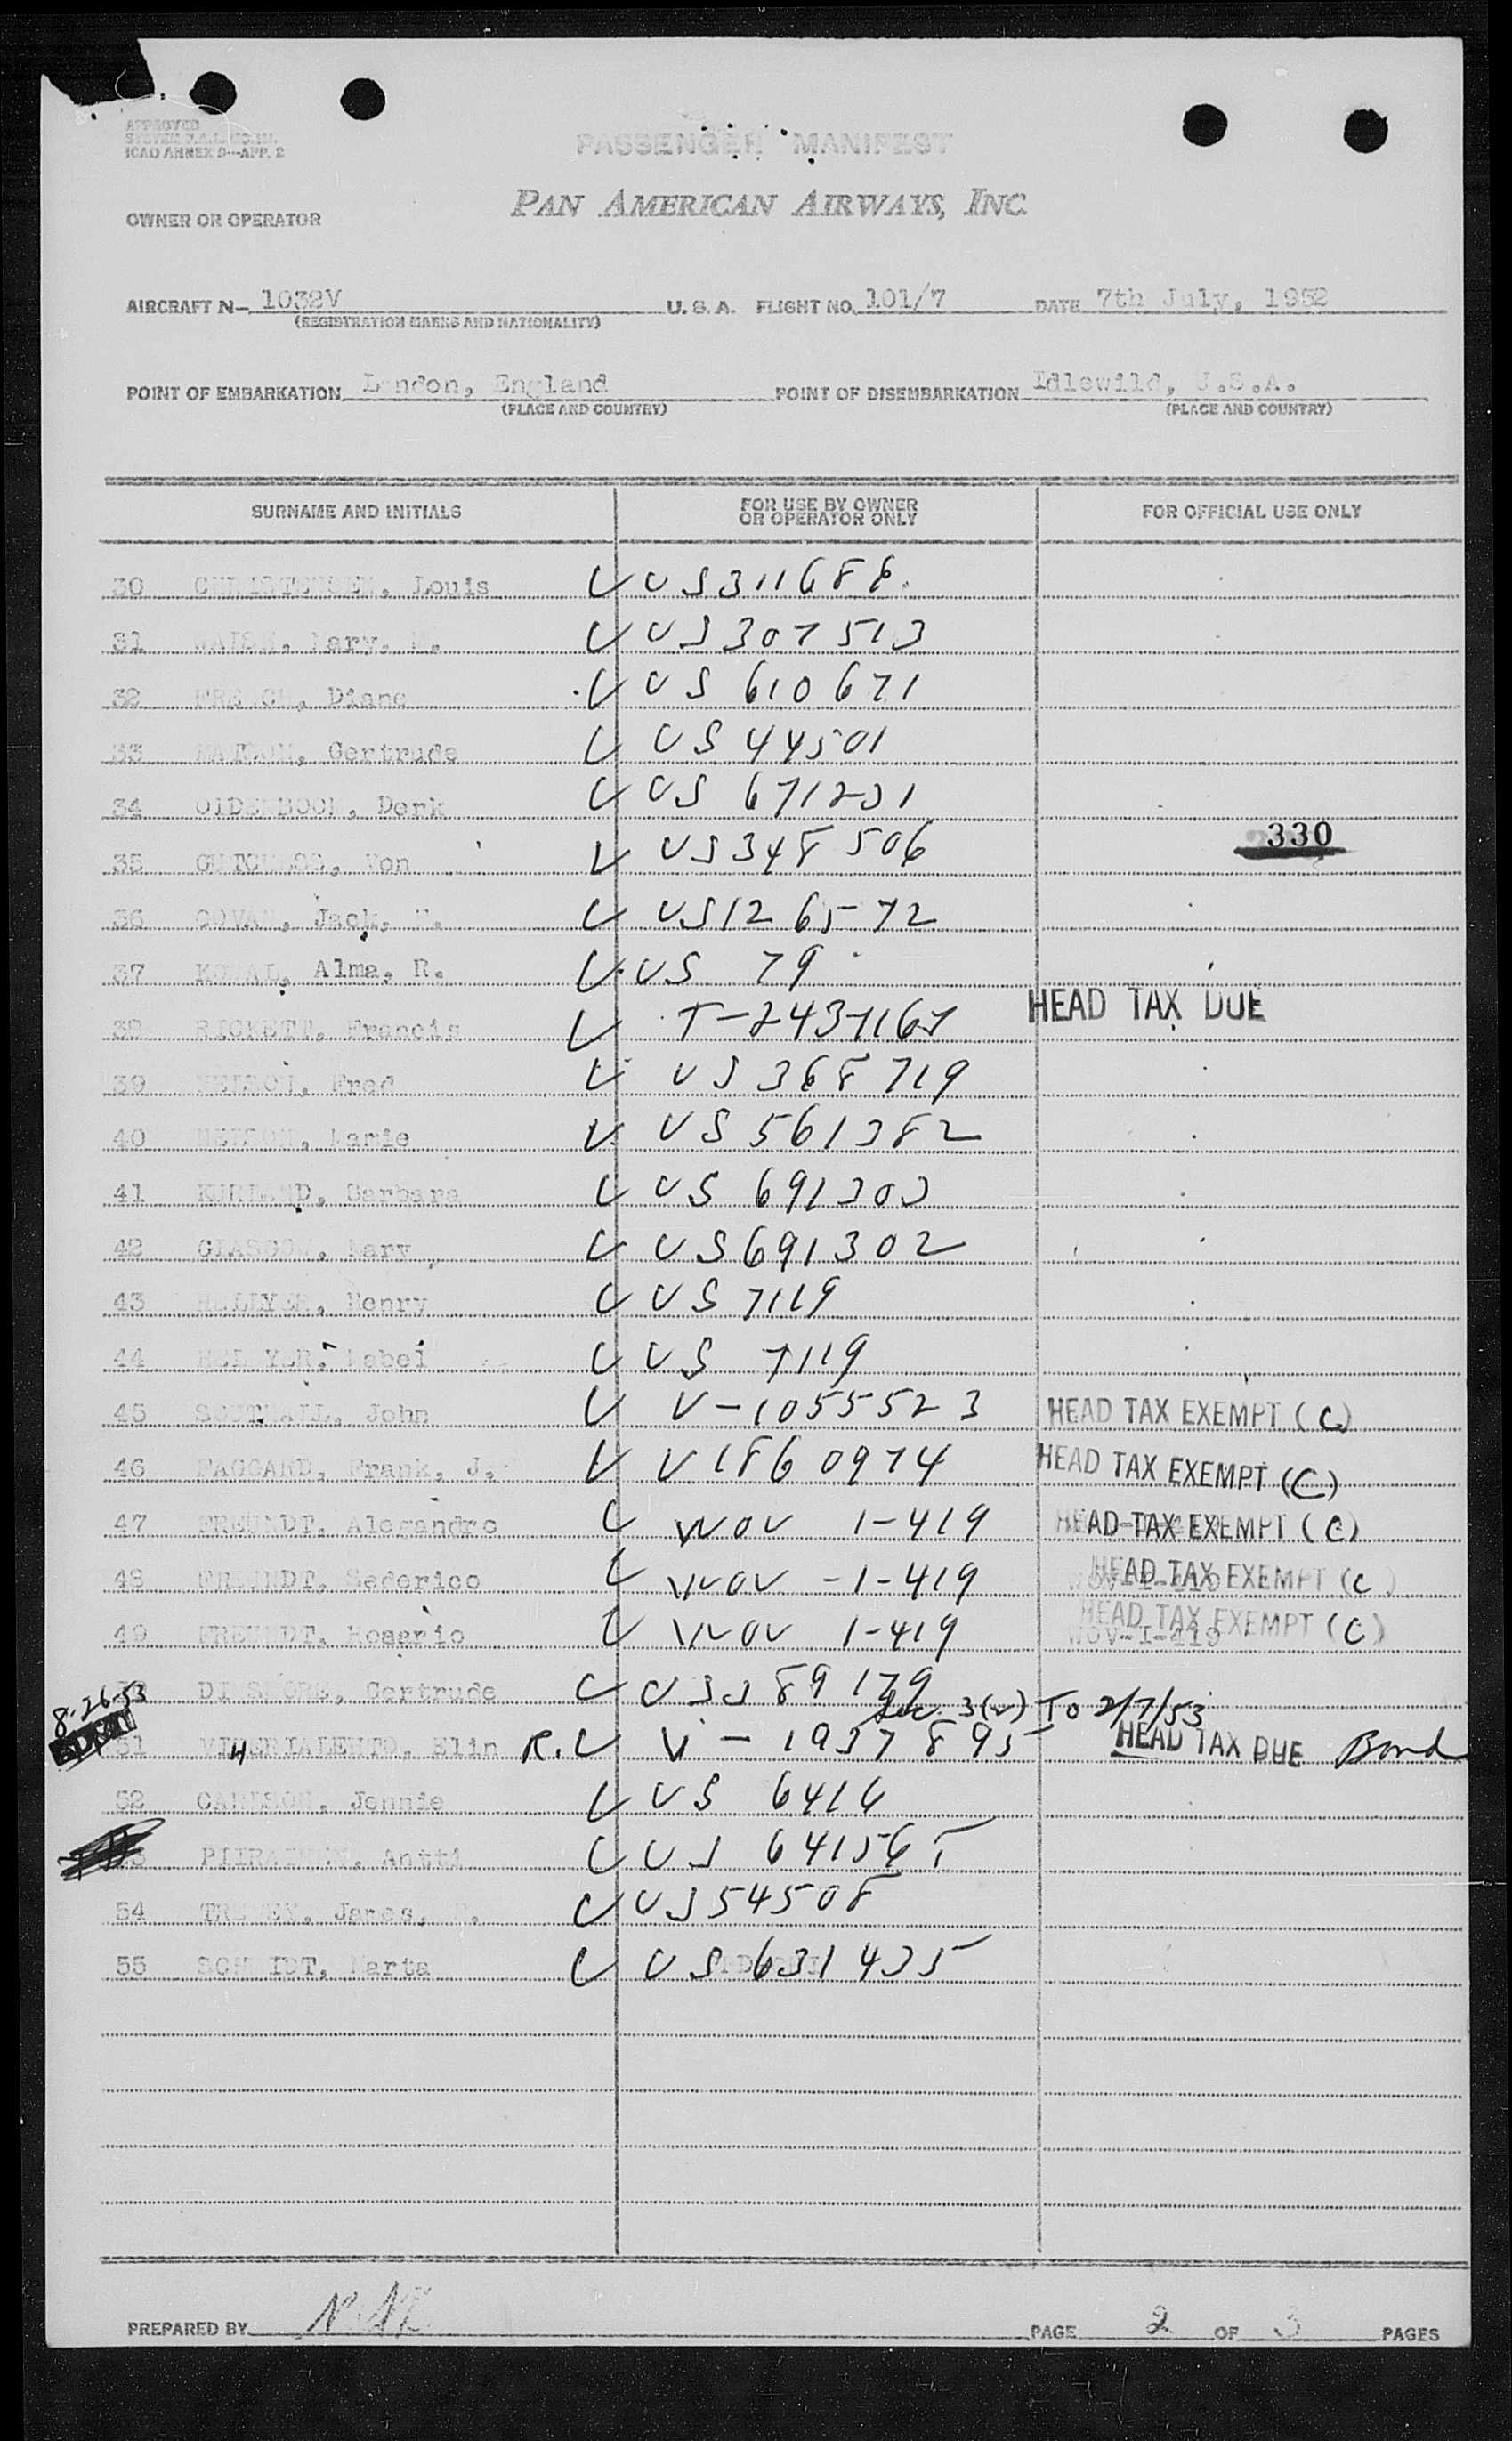 APPROVED
ICAO ANNEX 9—APP. 2
PASSENGER MANIFEST
OWNER OR OPERATOR
PAN AMERICAN AIRWAYS, INC.
AIRCRAFT N— 1032V U. S. A. FLIGHT NO. 101/7 DATE 7th July, 1952
(REGISTRATION MARKS AND NATIONALITY)
POINT OF EMBARKATION London, England POINT OF DISEMBARKATION Idlewild, U.S.A.
(PLACE AND COUNTRY) (PLACE AND COUNTRY)
SURNAME AND INITIALS FOR USE BY OWNER OR OPERATOR ONLY FOR OFFICIAL USE ONLY
30 CHRISTENSEN, Louis US 311688
31 Mary, US 307513
32 FRENCH, Diane US 610671
33 Gertrude US 44501
34 Derk US 671231
35 Von US 348506 330
36 COWAN, Jack, US 126572
37 Alma, R. US 79
38 RICKETT, Francis T-2437167 HEAD TAX DUE
39 NELSON, Fred US 368719
40 NELSON, Marie US 561382
41 KURLAND, Barbara US 691303
42 GLASGOW, Mary US 691302
43 HELLYER, Henry US 7119
44 HELLYER, Mabel US 7119
45 John V-1055523 HEAD TAX EXEMPT (C)
46 FAGGARD, Frank, J. V1860974 HEAD TAX EXEMPT (C)
47 FREUNDT, Alesandro WOV 1-419 HEAD TAX EXEMPT (C)
48 FREUNDT, WOV-1-419 HEAD TAX EXEMPT (C)
WOV-I-419
49 FREUNDT, Rosario WOV 1-419 HEAD TAX EXEMPT (C)
WOV-I-419
DINSMORE, Gertrude US 389179
8-26-53 3(2) To 2/7/53
51 Elin R. V-1937895 HEAD TAX DUE Bond
52 CARLSON, Jennie US 6416
PIIRAINEN, Antti US 641565
54 James, US 54508
55 SCHMIDT, Marta US 631435
PREPARED BY PAGE 2 OF 3 PAGES